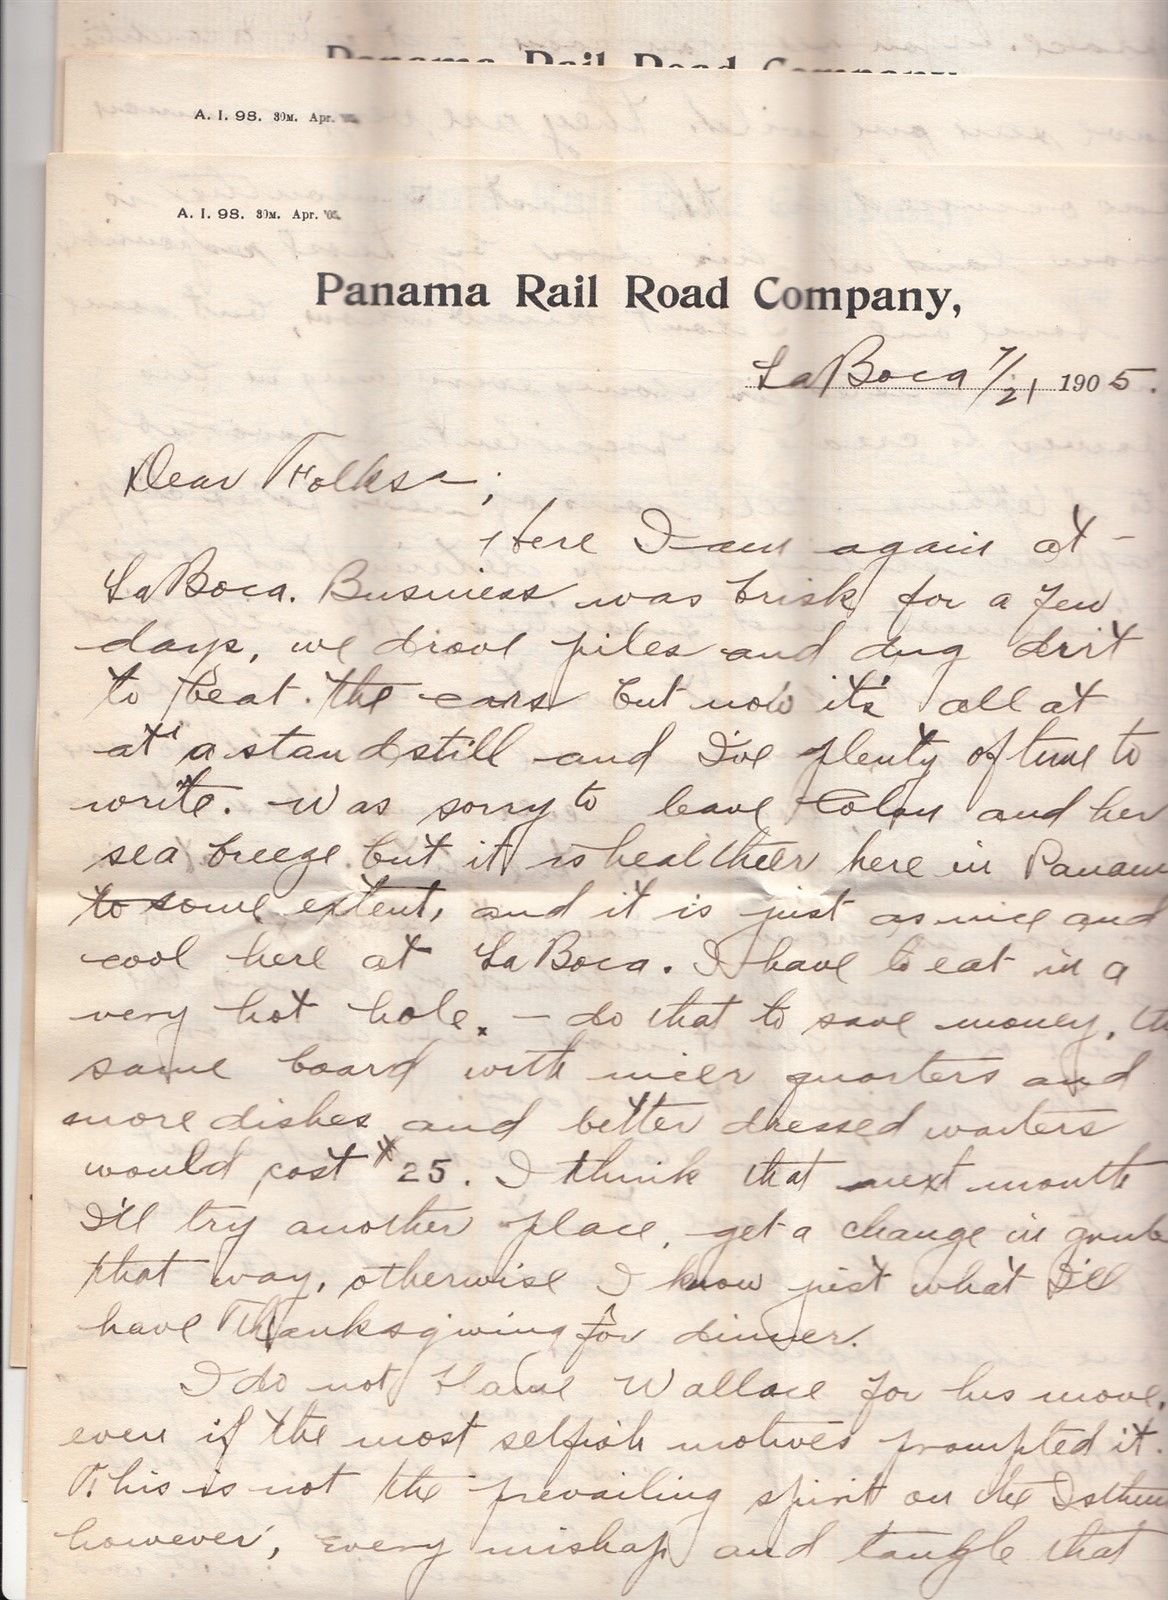 Panama Rail Road Company
A. I. 98. 30M. Apr.
A. I. 98. 30M. Apr. '05.
Panama Rail Road Company,
La Boca 7/21 1905.
Dear Folks;
Here I am again at -
La Boca. Business was brisk for a few
days, we drove piles and dug dirt
to beat the cars but now it's all at
at a standstill and I've plenty of time to
write. Was sorry to leave Colon and her
sea breeze but it is healthier here in Panam
to some extent, and it is just as nice and
cool here at La Boca. I have to eat in a
very hot hole. - do that to save money, th
same board with nicer quarters and
more dishes and better dressed waiters
would cost $25. I think that next month
I'll try another place, get a change in grub
that way, otherwise I know just what I'll
have Thanksgiving for dinner.
I do not blame Wallace for his move,
even if the most selfish motives prompted it.
This is not the prevailing spirit on the Isthm
however, every mishap and tangle that